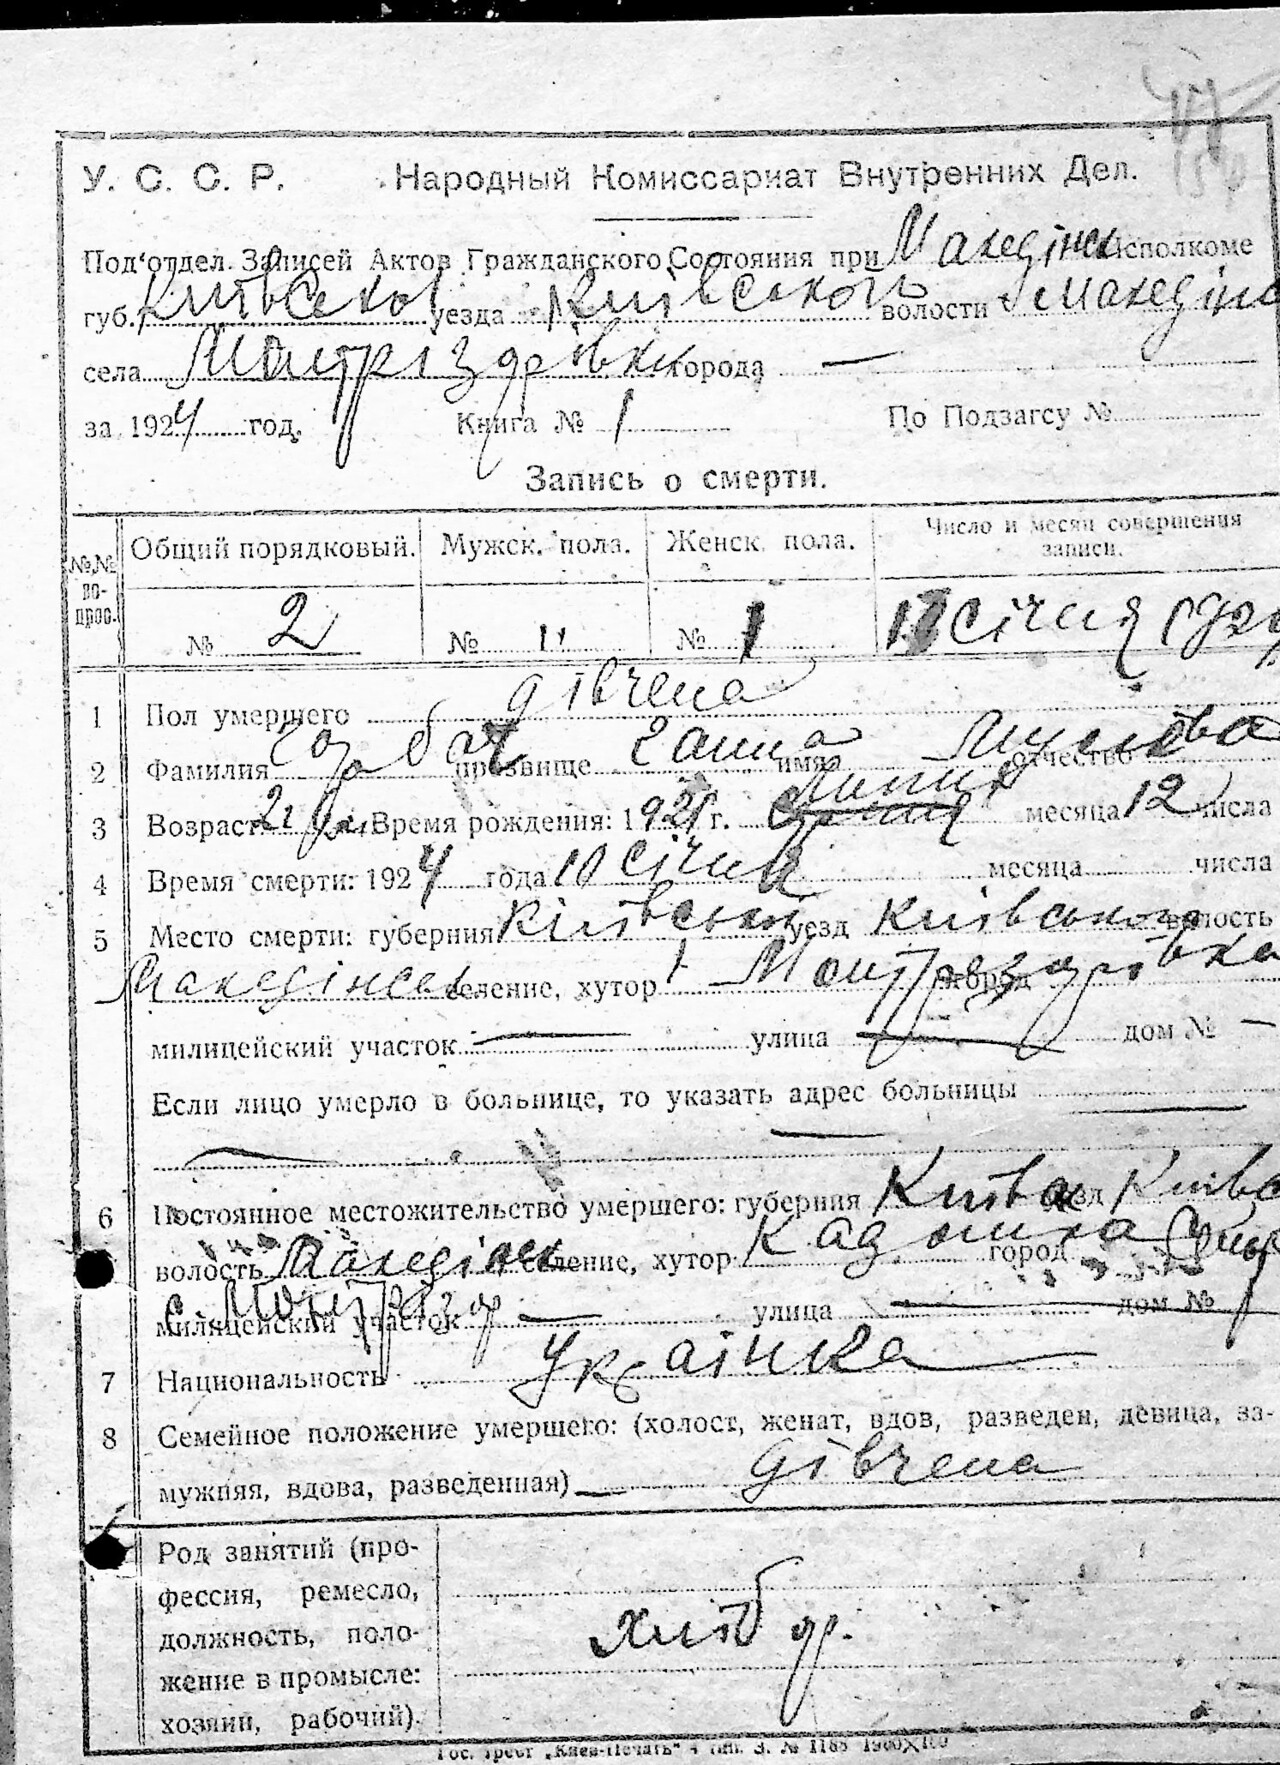 У. С. С. Р. Народный Комиссариат Внутренних Дел.
Под'отдел Записей Актов Гражданского Состояния при Македінськ Исполкоме
губ. Київської уезда Київського волости Македінс
села города —
за 1924 год. Книга № 1 По Подзагсу №
Запись о смерти.
№№ вопрос. Общий порядковый. Мужск. пола. Женск. пола. Число и месяц совершения записи.
№ 2 № " № 1 січня 1924
1 Пол умершего дівчена
2 Фамилия прозвище Ганна имя отчество
3 Возраст 2 Время рождения: 1921 г. Липня месяца 12 числа
4 Время смерти: 1924 года 10 січня месяца числа
5 Место смерти: губерния Київської уезд Київського волость
Македінськ селение, хутор город
милицейский участок — улица — дом № —
Если лицо умерло в больнице, то указать адрес больницы —
— —
6 Постоянное местожительство умершего: губерния Київ уезд Київс
волость Македінськ селение, хутор город
с. милицейский участок — улица — дом №
7 Национальность Українка
8 Семейное положение умершего: (холост, женат, вдов, разведен, девица, за-
мужняя, вдова, разведенная) — дівчена
Род занятий (про-
фессия, ремесло,
должность, поло- хліб ор.
жение в промысле:
хозяин, рабочий).
Гос. трест „Киев-Печать" 4 тип. З. № 1168